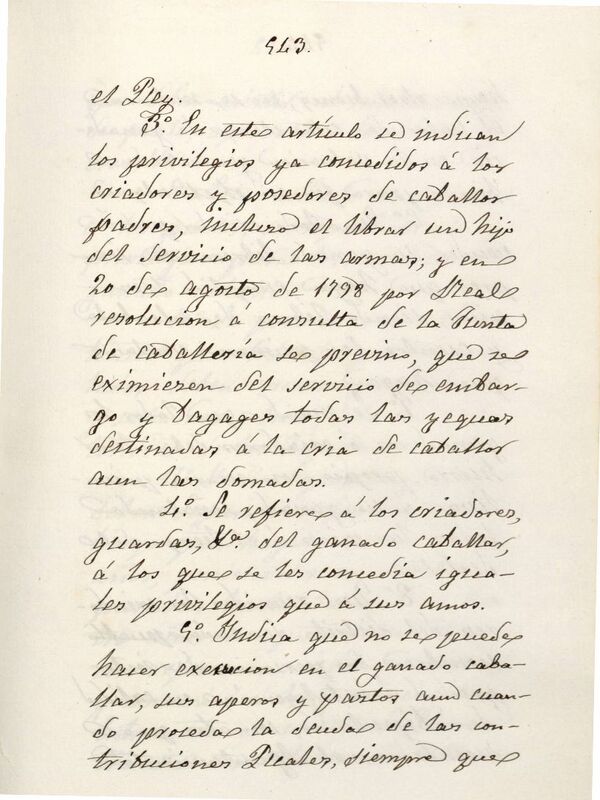 543.
el Rey.
3º. En este artículo se indican
los privilegios ya concedidos á los
criadores y posedores de caballos
padres, incluso el librar un hijo
del servicio de las armas; y en
20 de agosto de 1798 por Real
resolucion á consulta de la Junta
de caballería se previno, que se
eximiesen del servicio de embar-
go y bagages todas las yeguas
destinadas á la cria de caballos
aun las domadas.
4º. Se refiere á los criadores,
guardas, &ª. del ganado caballar,
á los que se les concedia igua-
les privilegios que á sus amos.
5º. Indica que no se puede
hacer execucion en el ganado caba-
llar, sus aperos y pastos aun cuan-
do proseda la deuda de las con-
tribuciones Reales, siempre que